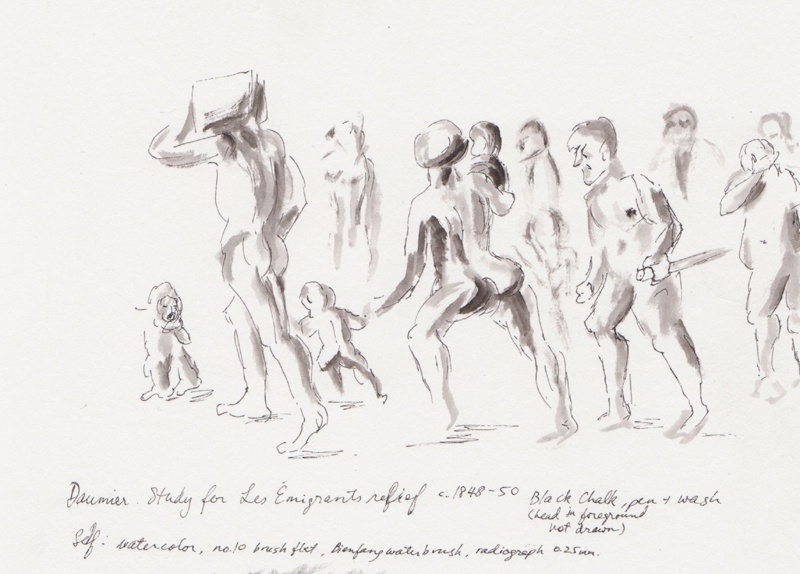 Daumier. Study for Les Émigrants relief c. 1848-50 Black Chalk, pen + wash
(head in foreground
not drawn)
Self: watercolor, no.10 brush flat, Bienfang waterbrush, radiograph 0.25mm.